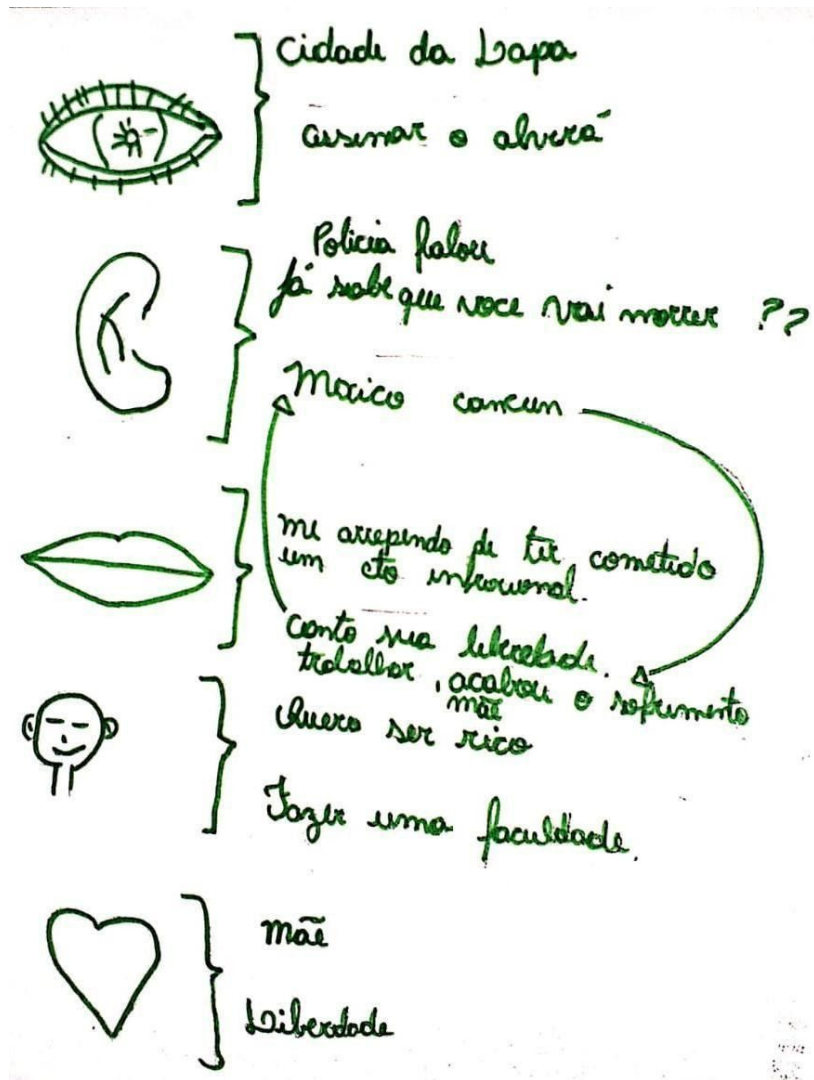 Cidade da Lapa
assinar o alverá
Policia falou
Já sabe que voce vai morrer ??
Mexico cancun
me arrependo de ter cometido
um ato infracional.
Canto sua liberdade.
trabalhar, acabou o sofrimento
mãe
Quero ser rico
Fazer uma faculdade.
mãe
Liberdade